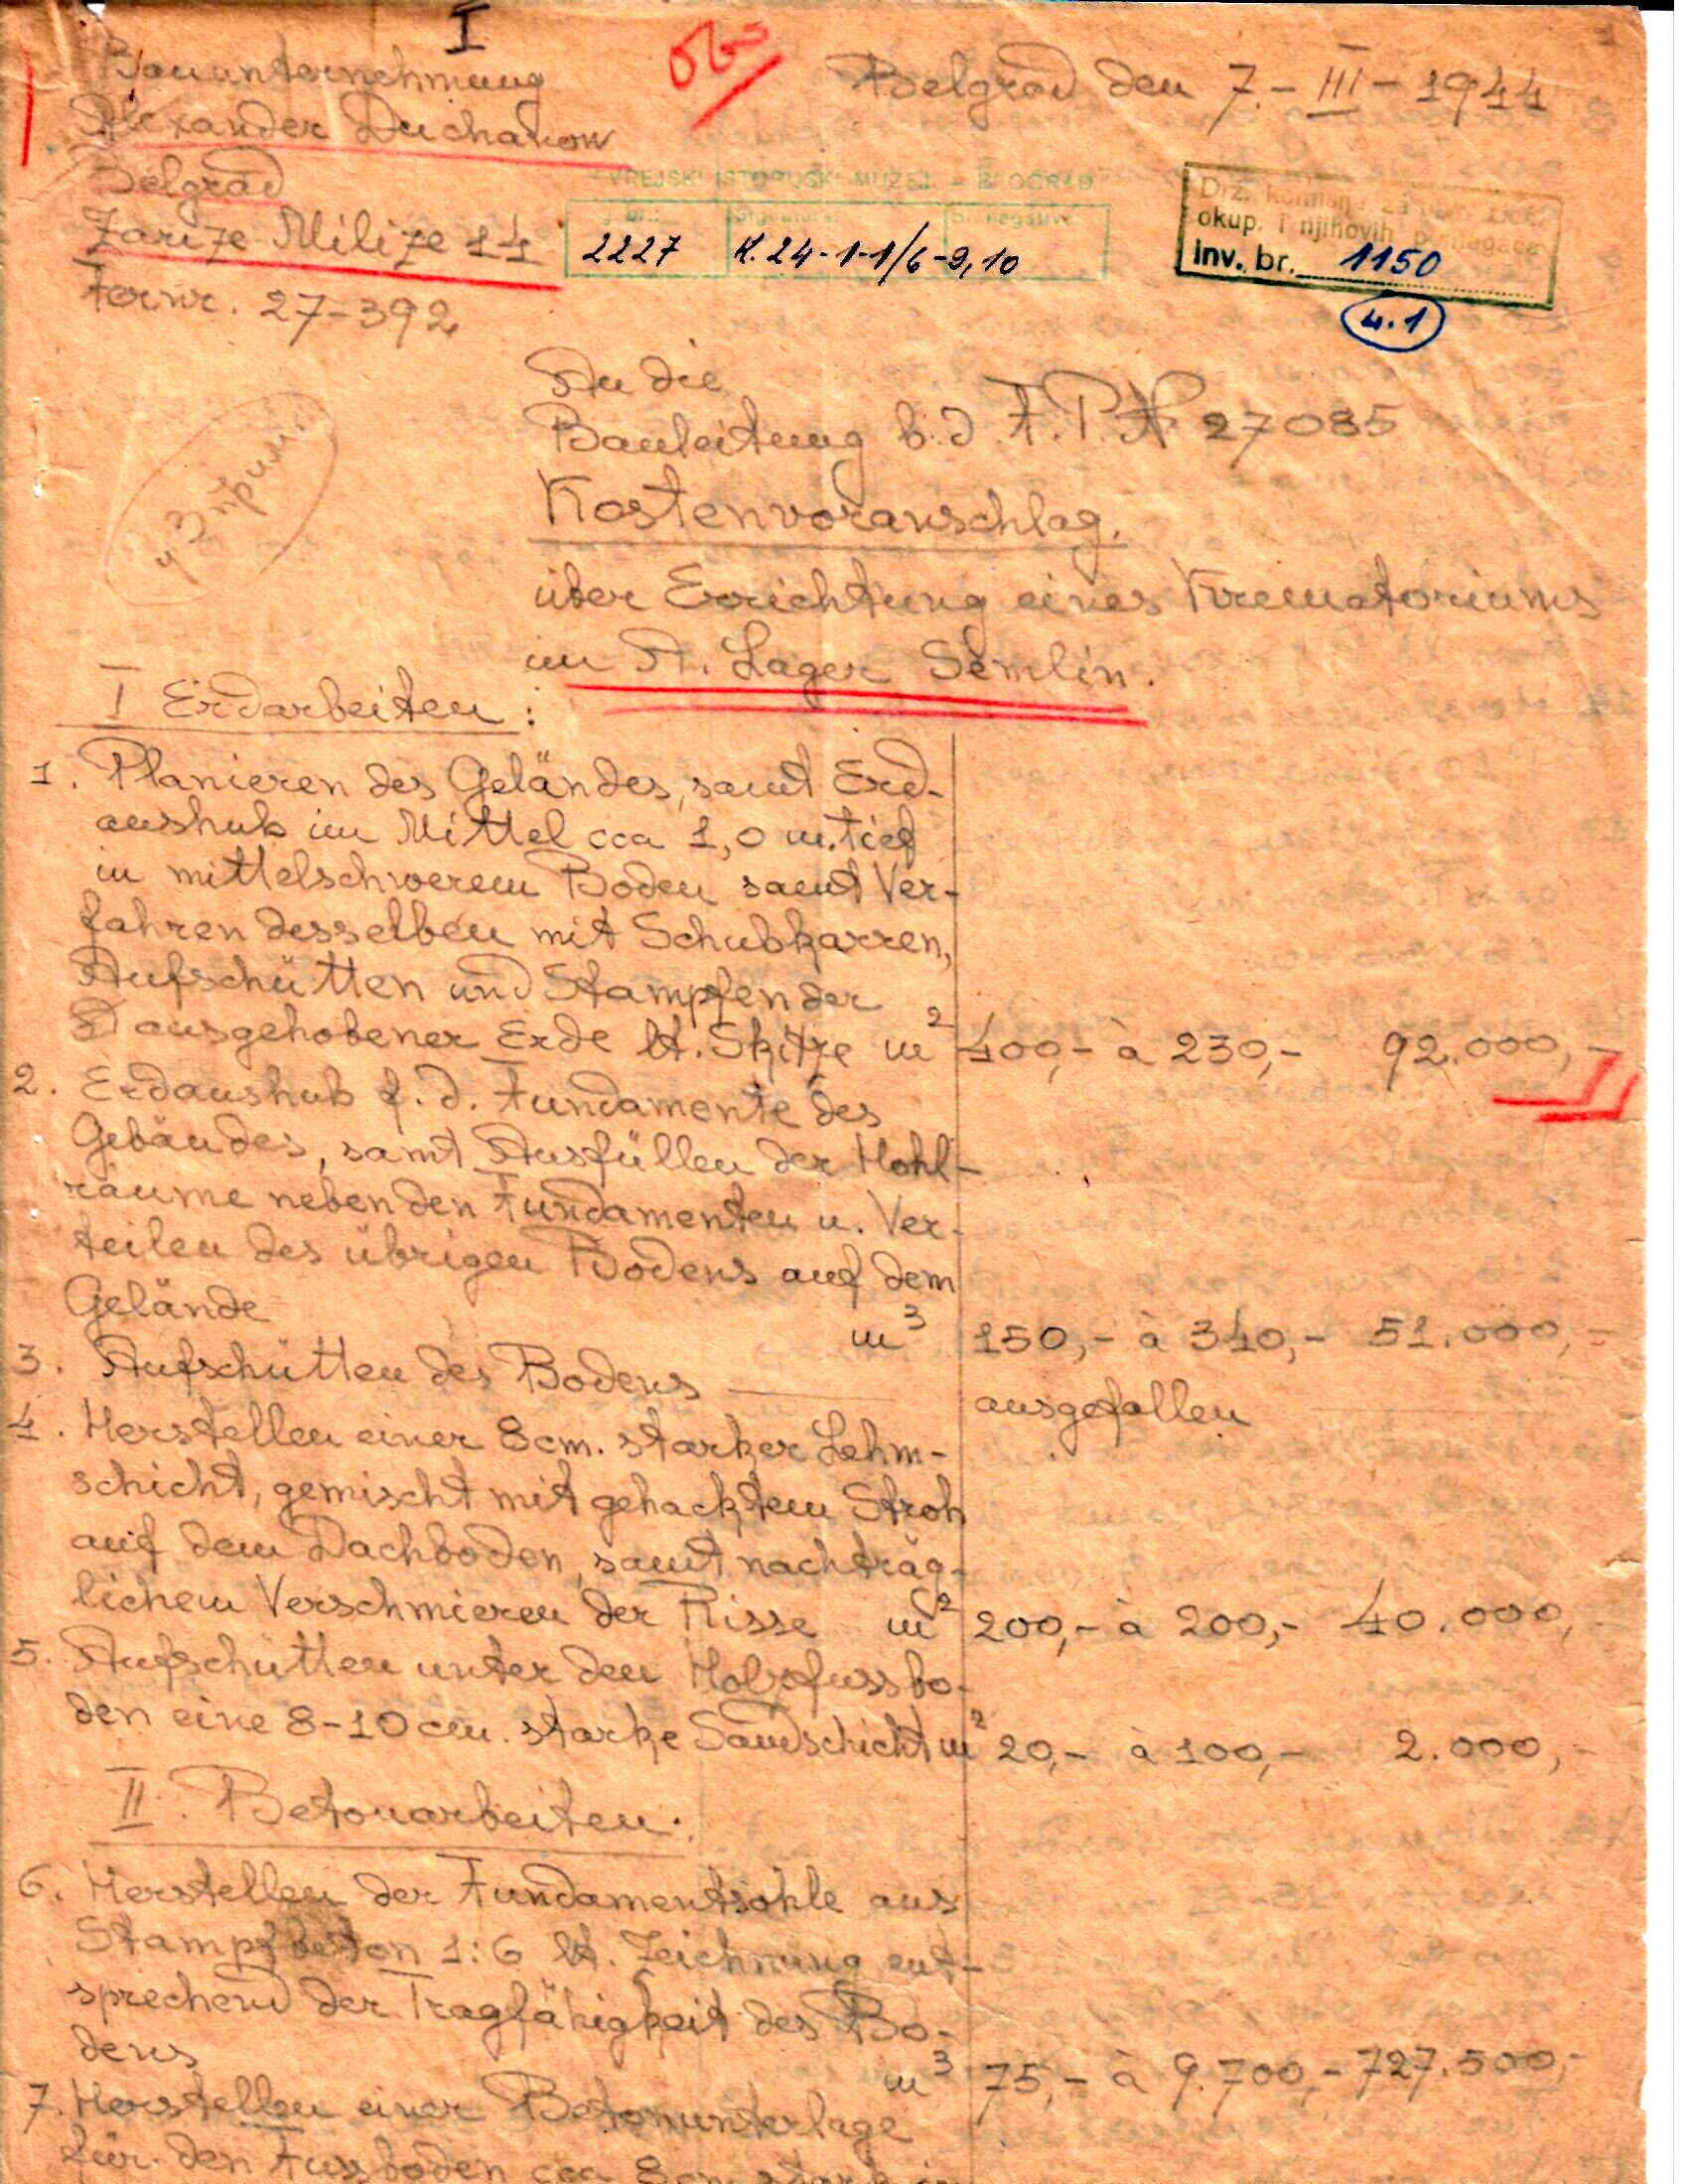 I
Bauunternehmung
Alexander Duchanow
Belgrad
Zarize Milize 14
Fernr. 27-392
Belgrad den 7.-III-1944
JEVREJSKI ISTORIJSKI MUZEJ - BEOGRAD
signatura: br. negativa:
2227 K.24-1-1/6-9,10
Drž. komisija za
okup. i njihovih pomagača
Inv. br. 1150
4.1
An die
Bauleitung b.d. F.P.N 27085
Kostenvoranschlag.
über Errichtung eines Krematoriums
im A. Lager Semlin.
I Erdarbeiten:
1. Planieren des Geländes, samt Erd-
aushub im Mittel cca 1,0 m. tief
in mittelschwerem Boden samt Ver-
fahren desselben mit Schubkarren,
Aufschütten und Stampfen der
ausgehobener Erde lt. Skitze m² 400,- à 230,- 92.000,-
2. Erdaushub f.d. Fundamente des
Gebäudes, samt Ausfüllen der Hohl-
räume neben den Fundamenten u. Ver-
teilen des übrigen Bodens auf dem
Gelände m³ 150,- à 340,- 51.000,-
3. Aufschütten des Bodens ausgefallen
4. Herstellen einer 8cm. starker Lehm-
schicht, gemischt mit gehacktem Stroh
auf dem Dachboden, samt nachträg-
lichem Verschmieren der Risse m² 200,- à 200,- 40.000,-
5. Aufschütten unter den Holzfussbo-
den eine 8-10cm. starke Sandschicht m² 20,- à 100,- 2.000,-
II. Betonarbeiten:
6. Herstellen der Fundamentsohle aus
Stampfbeton 1:6 lt. Zeichnung ent-
sprechend der Tragfähigkeit des Bo-
dens m³ 75,- à 9.700,- 727.500,-
7. Herstellen einer Betonunterlage
für den Fussboden cca 8cm stark